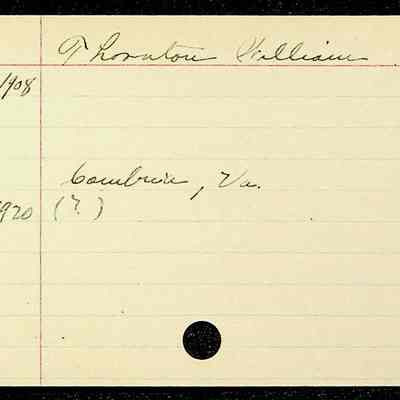 Thornton William
1908
Cambria, Va.
1920 (?)